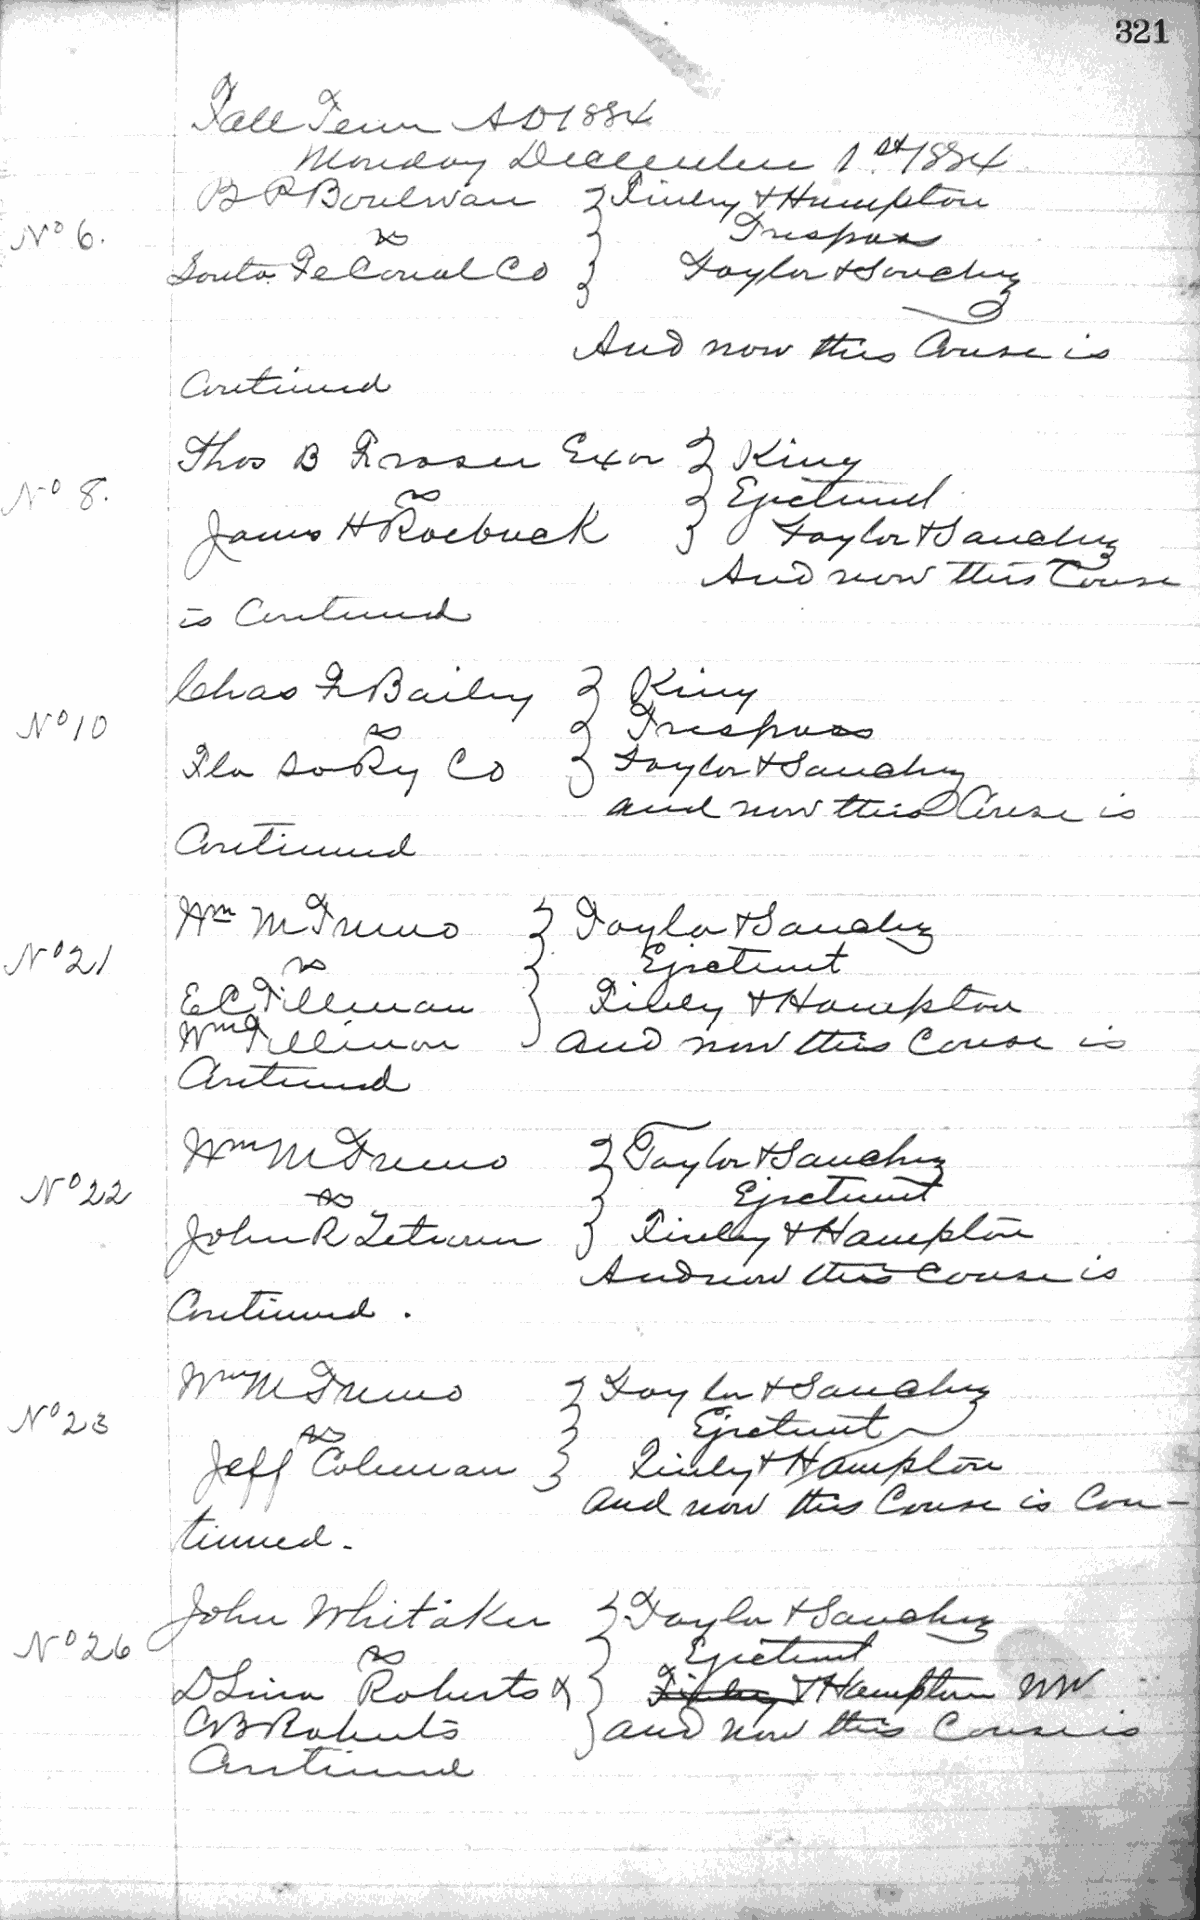 321
Fall Term AD 1884
Monday December 1st 1884
B P Boulwan } Finley & Hampton
No 6. vs } Trespass
Santa Fe Canal Co } Taylor & Sanchez
And now this Cause is
Continued
Thos B Fraser Exor } King
No 8. vs } Ejectment
James H Roebuck } Taylor & Sanchez
And now this Cause
is Continued
Chas F Bailey } King
No 10 vs } Trespass
Fla So Ry Co } Taylor & Sanchez
and now this Cause is
Continued
Wm M Treno } Taylor & Sanchez
No 21 vs } Ejectment
E C Tillman } Finley & Hampton
Wm Tillman } and now this Cause is
Continued
Wm M Treno } Taylor & Sanchez
No 22 vs } Ejectment
John R } Finley & Hampton
And now this Cause is
Continued.
Wm M Treno } Taylor & Sanchez
No 23 vs } Ejectment
Jeff Coleman } Finley & Hampton
and now this Cause is Con-
tinued.
John Whitaker } Taylor & Sanchez
No 26 vs } Ejectment
Roberts & } Finley & Hampton
C B Roberts } and now this Cause is
Continued